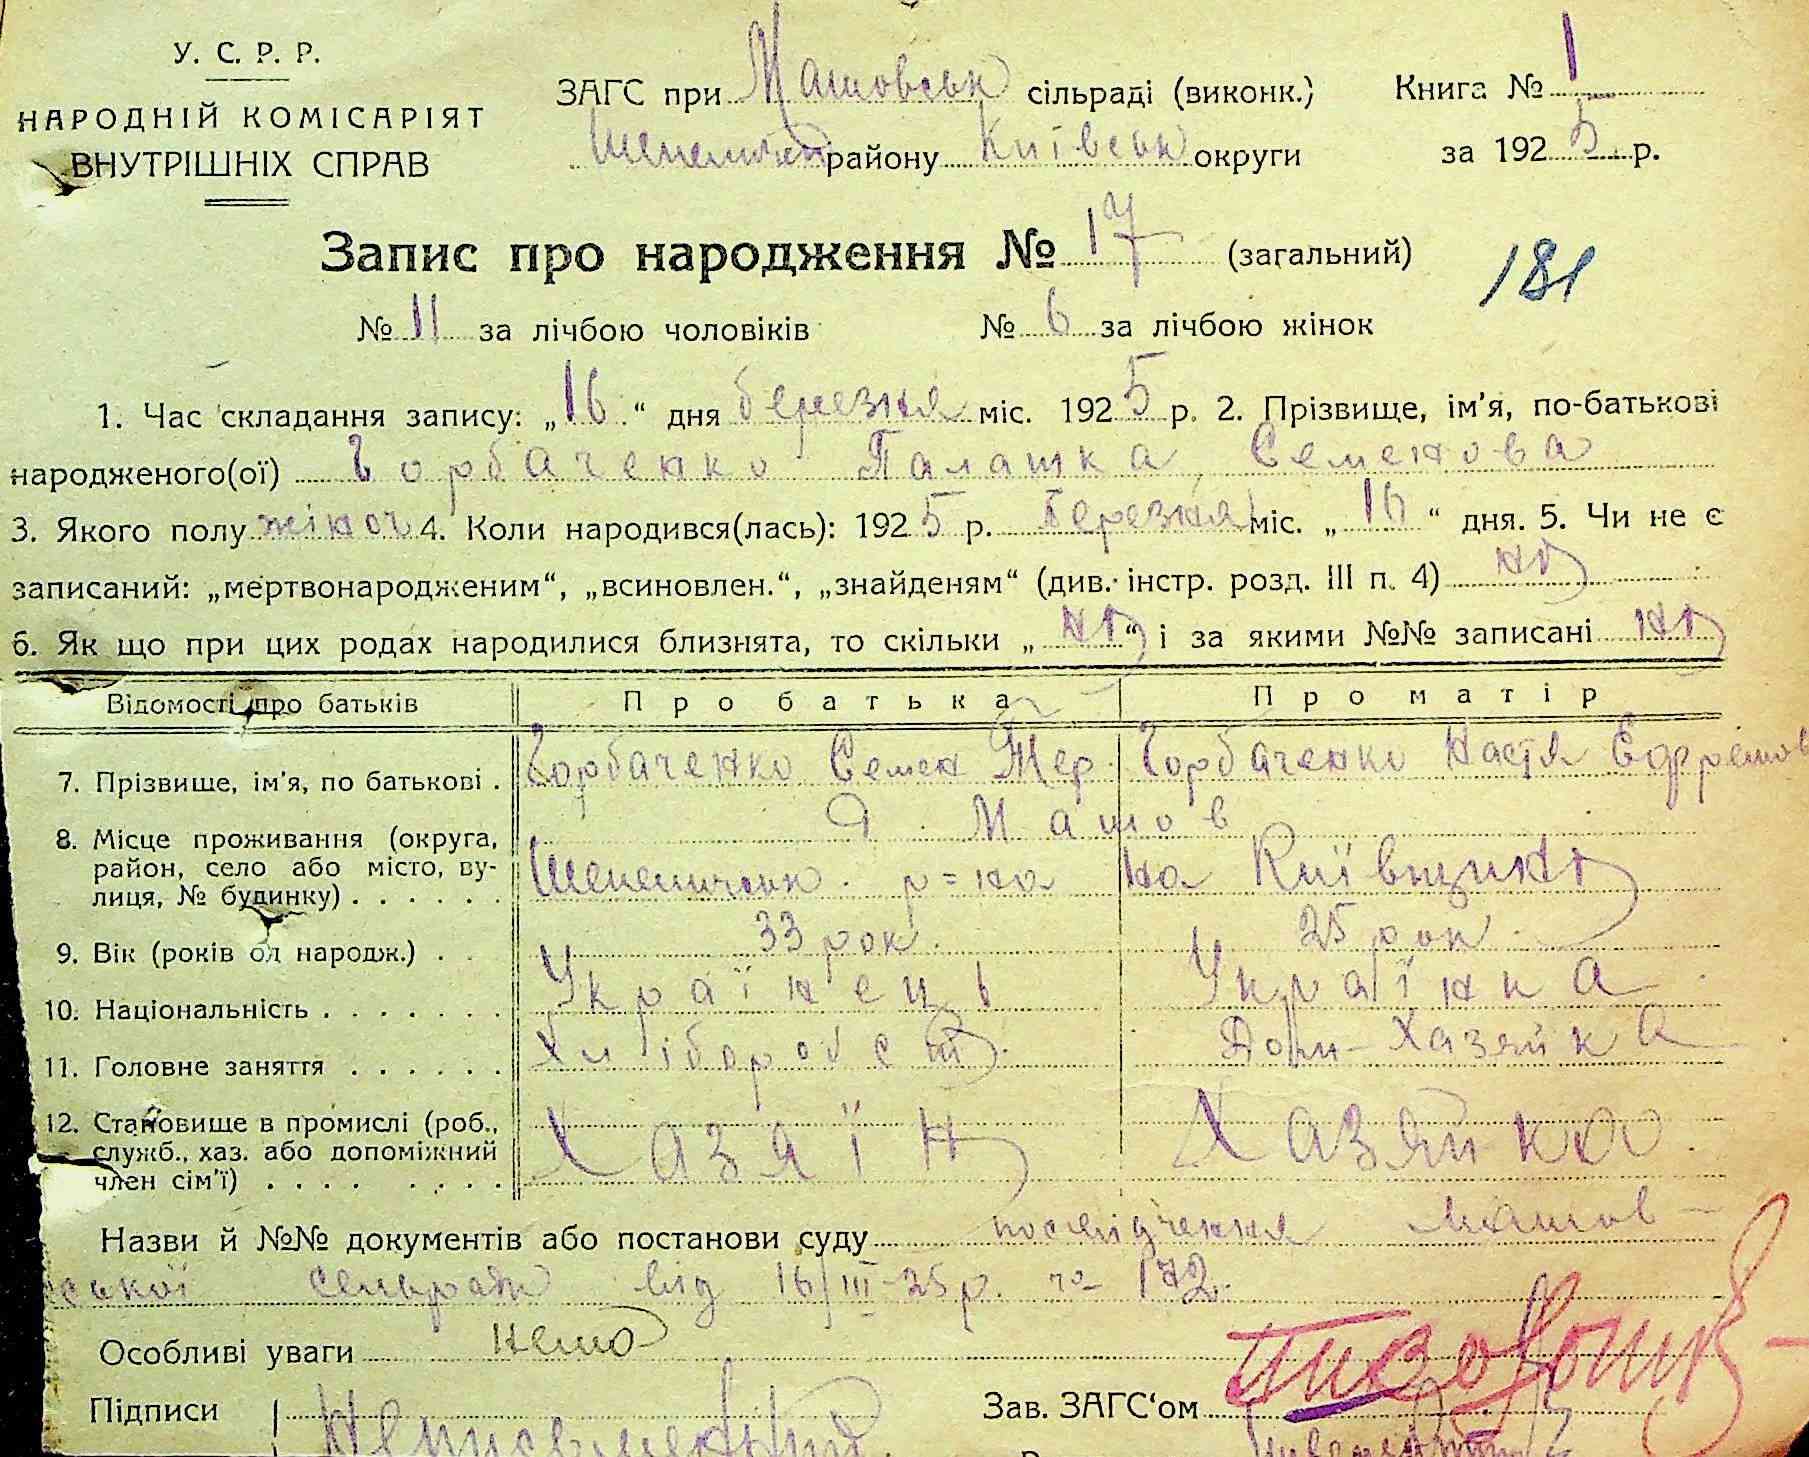 У. С. Р. Р.
НАРОДНІЙ КОМІСАРІЯТ
ВНУТРІШНІХ СПРАВ
ЗАГС при Машовськ сільраді (виконк.) Книга № 1
Шепелицьк району Київськ округи за 1925 р.
Запис про народження № 17 (загальний)
181
№ 11 за лічбою чоловіків № 6 за лічбою жінок
1. Час складання запису: „16“ дня березня міс. 1925 р. 2. Прізвище, ім'я, по-батькові
народженого(ої) Горбаченко Палашка Семенова
3. Якого полу жіноч 4. Коли народився(лась): 1925 р. Березня міс. „16“ дня. 5. Чи не є
записаний: „мертвонародженим“, „всиновлен.“, „знайденям“ (див. інстр. розд. III п. 4) ні
6. Як що при цих родах народилися близнята, то скільки „ні“ і за якими №№ записані ні
Відомості про батьків Про батька Про матір
7. Прізвище, ім'я, по батькові . Горбаченко Семен Тер. Горбаченко Настя Єфремов
8. Місце проживання (округа, Машов
район, село або місто, ву- Шепелицьк. р=на на Київщині
лиця, № будинку) . . . . . .
9. Вік (років од народж.) . . 33 рок. 25 рок.
10. Національність . . . . . . . Українець Українка
11. Головне заняття . . . . . . Хлібороб Дом-Хазяйка
12. Становище в промислі (роб., Хазяїн Хазяйка
служб., хаз. або допоміжний
член сім'ї) . . . . . . . .
Назви й №№ документів або постанови суду посвідчення Машов-
ської сельради від 16/III-25р. № 172.
Особливі уваги нема
Підписи Неписьменний Зав. ЗАГС'ом